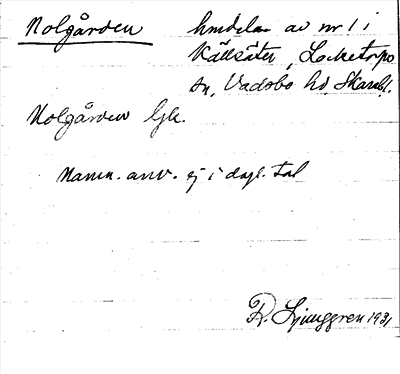 Nolgården hmdelar av nr 1 i
Källsäter, Locketorps
sn, Vadsbo hd, Skarabl.
Nolgården Gjk.
Namn. anv. ej i dagl. tal
R. Ljunggren 1931